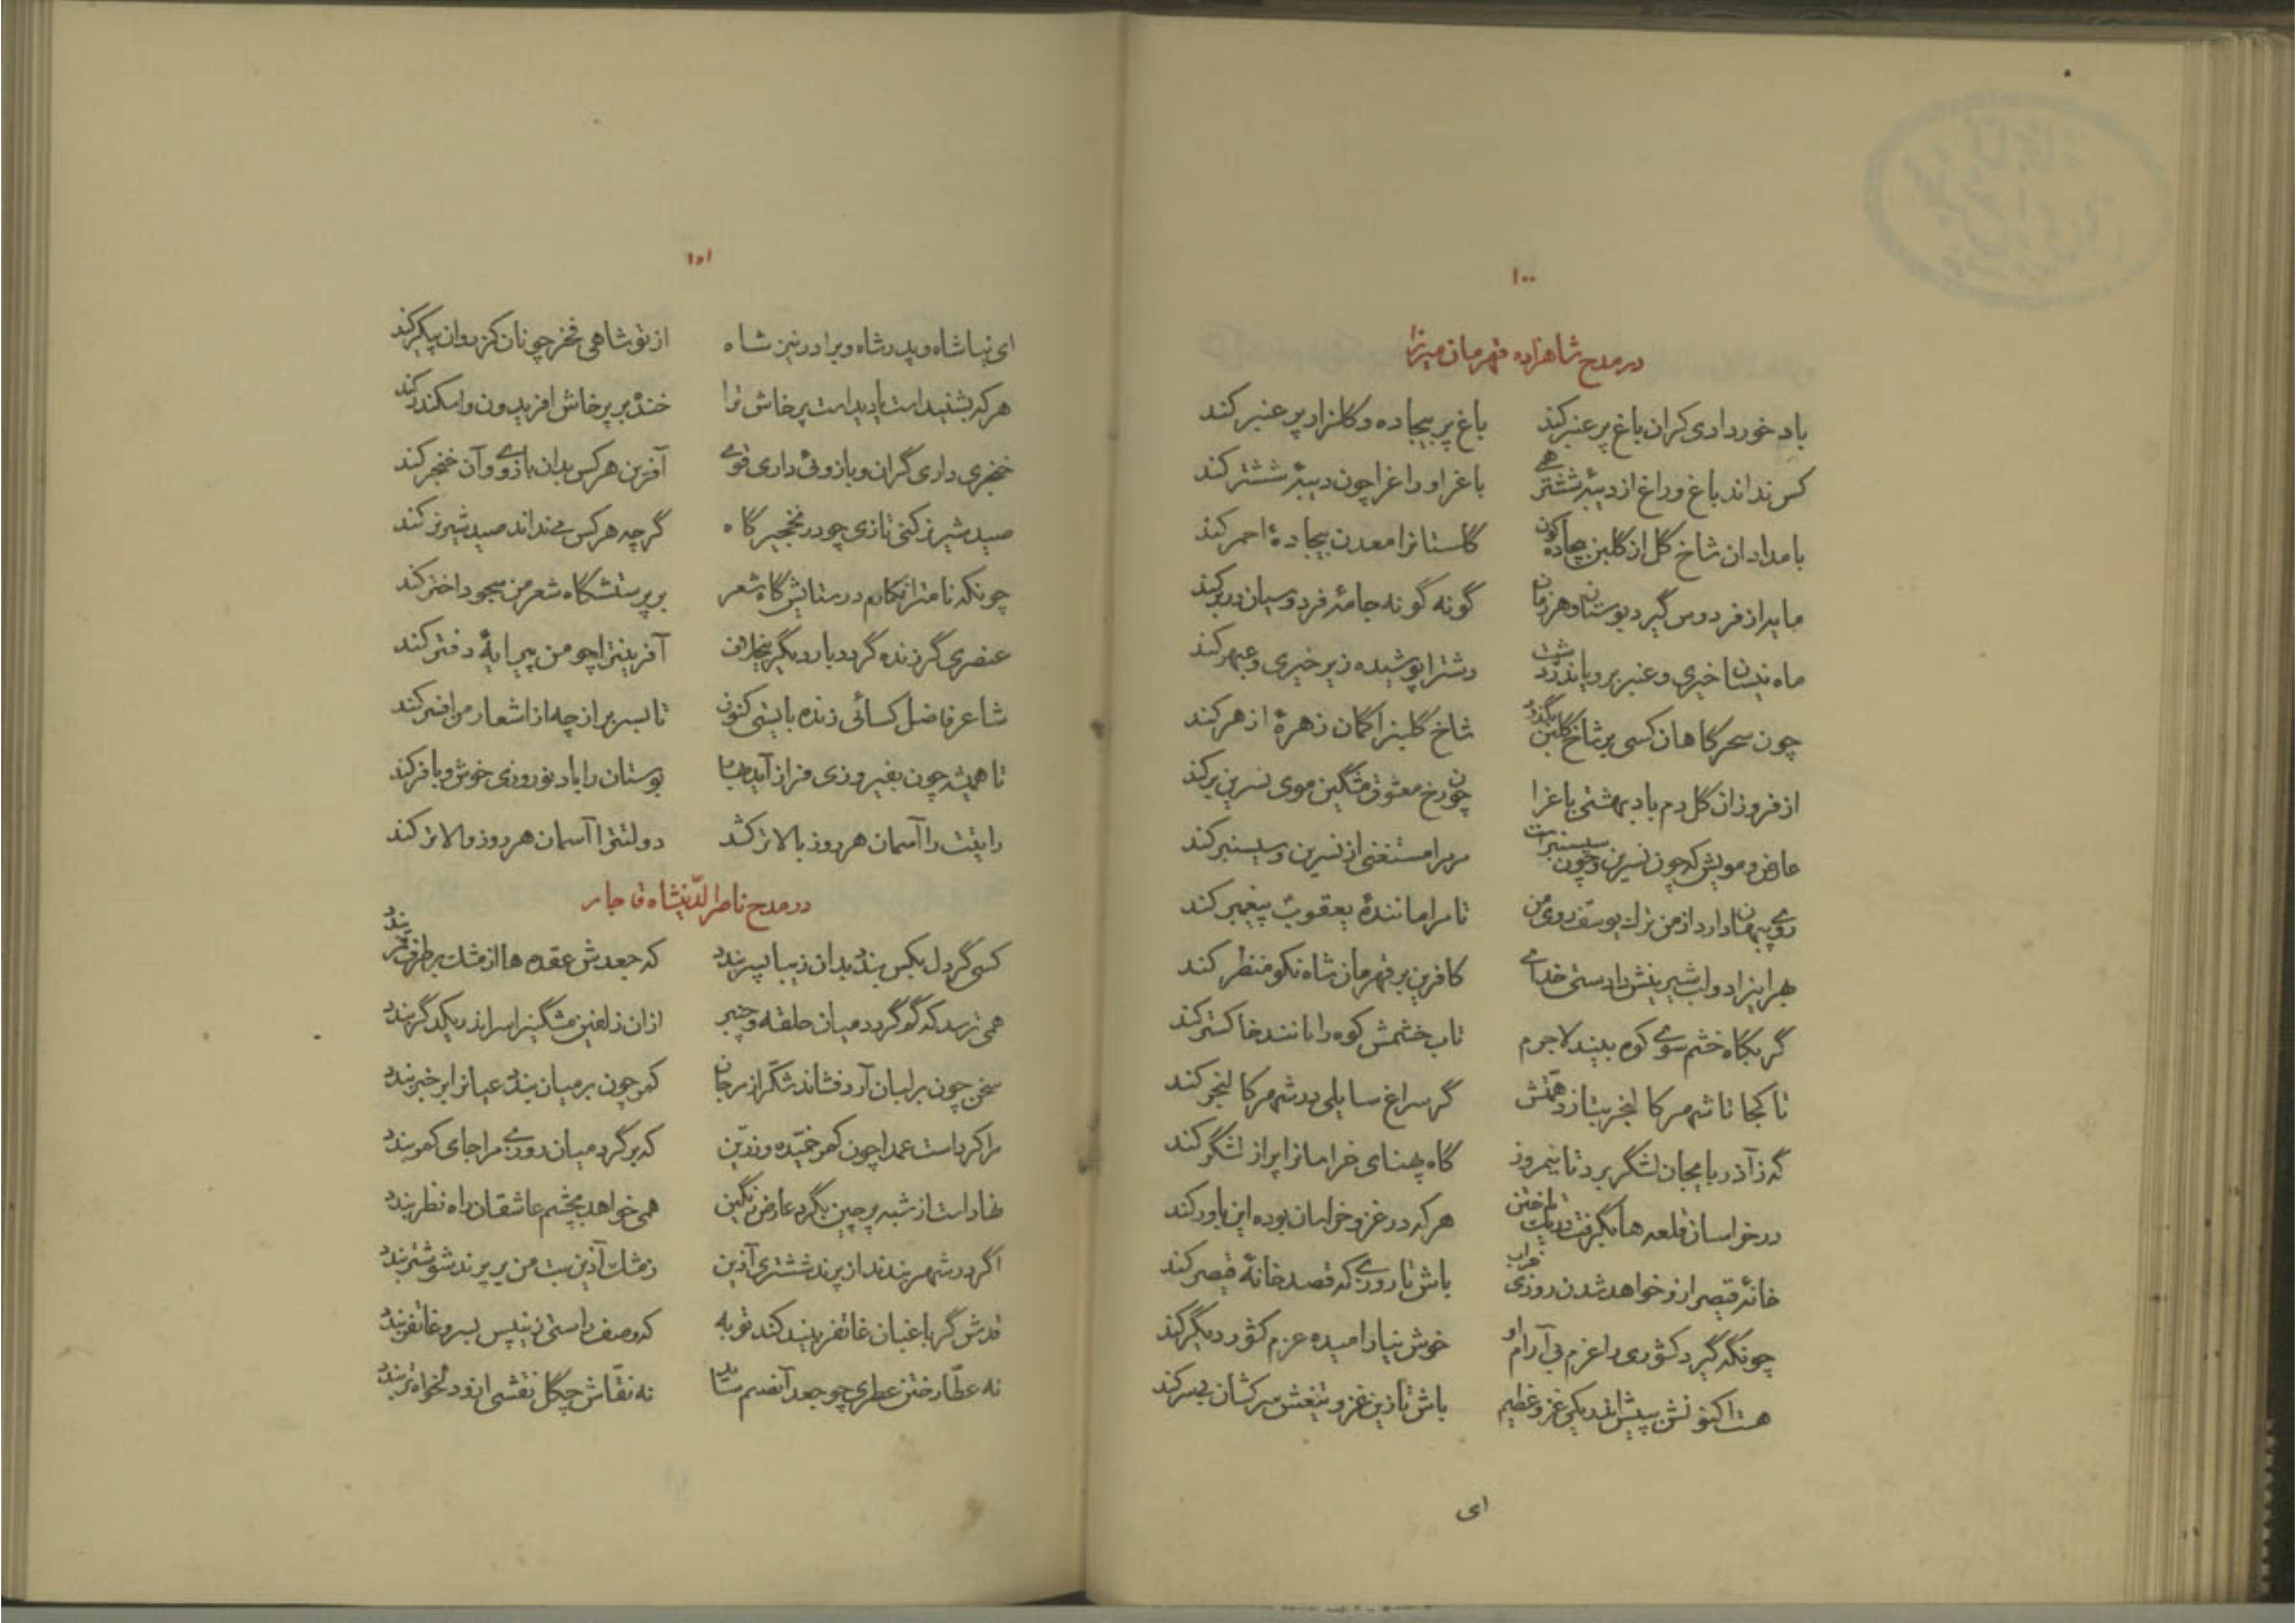 ۱۰۰
در مدح شاهزاده قهرمان میرزا
باد خوردادی کران باغ پر عنبر کند باغ پر بیجاده و کلزار پر عنبر کند
کس نداند باغ و راغ از دیبهٔ ششتر همی باغرا و راغرا چون دیبهٔ ششتر کند
بامدادان شاخ گل از گلبن بیجاده‌گون گلستانرا معدن بیجادهٔ احمر کند
مایه از فردوس گیرد بوستان و هر زمان گونه گونه جامهٔ فردوسیان در بر کند
ماه نیسان خیری و عنبر برویاند ز دشت دشترا پوشیده زیر خیری و عبهر کند
چون سحرگاهان کسی بر شاخ گلبن بگذرد شاخ گلبنرا گمان زهرهٔ ازهر کند
از فروزان گل دم باد بهشتی باغرا چون رخ معشوق مشگین موی نسرین بر کند
عارض و مویش که چون نسرین و چون سیسنبرست مر مرا مستغنی از نسرین و سیسنبر کند
روی پنهان دارد از من ترک یوسف روی من تا مرا مانندهٔ یعقوب پیغمبر کند
بهر این زاد و لب شیرینش دادستی خدای کافرین بر قهرمان شاه نکو منظر کند
گر بگاه خشم سوی کوه بیند لاجرم تاب خشمش کوه را مانند خاکستر کند
تا کجا تا شهر کالنجر بتازد همتش گر سراغ سایلی در شهر کالنجر کند
گه ز آذربایجان لشگر برد تا نیمروز گاه پهنای خراسانرا پر از لشگر کند
در خراسان قلعه‌ها بگرفت در یک تاختن هر که در غزو خراسان بوده این باور کند
خانهٔ قیصر ازو خواهد شدن روزی خراب باش تا روزی که قصد خانهٔ قیصر کند
چونکه گیرد کشوری را عزم بی آرام او خوش نیارامیده عزم کشور دیگر کند
هست اکنونش پیش اندر یکی غزو عظیم باش تا زین غزو تیغش سرکشان بی سر کند
ای
۱۰۱
ای نیا شاه و پدر شاه و برادر نیز شاه از تو شاهی فخر چونان کز روان پیکر کند
هر که بشنیدست یا دیدست پرخاش ترا خنده بر پرخاش افریدون و اسکندر کند
خنجری داری گران و بازوئی داری قوی آفرین هر کس بدان بازوی و آن خنجر کند
صید شیر نر کنی تازی چو در نخجیرگاه گرچه هر کس می نداند صید شیر نر کند
چونکه نامت را نگارم در ستایش گاه شعر بر پرستشگاه شعر من سجود اختر کند
عنصری گر زنده گردد بار دیگر بیخلاف آفرینترا چو من پیرایهٔ دفتر کند
شاعر فاضل کسائی زنده بایستی کنون تا بسر بر از چه از اشعار من افسر کند
تا همیشه چون بفیروزی فراز آید بهار بوستان را باد نوروزی خوش و با فر کند
رایتت را آسمان هر روز بالاتر کشد دولتترا آسمان هر روز والاتر کند
در مدح ناصرالدینشاه قاجار
کسی گر دل بکس بندد بدان زیبا پسر بندد که جعدش عقده‌ها از مشک بر طرف قمر بندد
همی ترسد که گم گردد میان حلقه و چنبر ازان زلفین مشگینرا سر اندر یکدگر بندد
سخن چون بر لبان آرد فشاند شکر از مرجان کمر چون بر میان بندد عیانرا بر خبر بندد
مرا کردست عمدا چون کمر خمیده و زرین که بر گرد میان روزی مرا جای کمر بندد
نهادست از شبه پرچین بگرد عارض رنگین همی خواهد بچشم عاشقان راه نظر بندد
اگر در شهر بندند از پرند ششتری آذین ز مشک آذین بت من بر پرند شوشتر بندد
قدش گر باغبان غاتفر بیند کند توبه که وصف راستی زین پس بسرو غاتفر بندد
نه عطار ختن عطری چو جعد آن صنم ساید نه نقاش چگل نقشی ازو دلخواه تر بندد